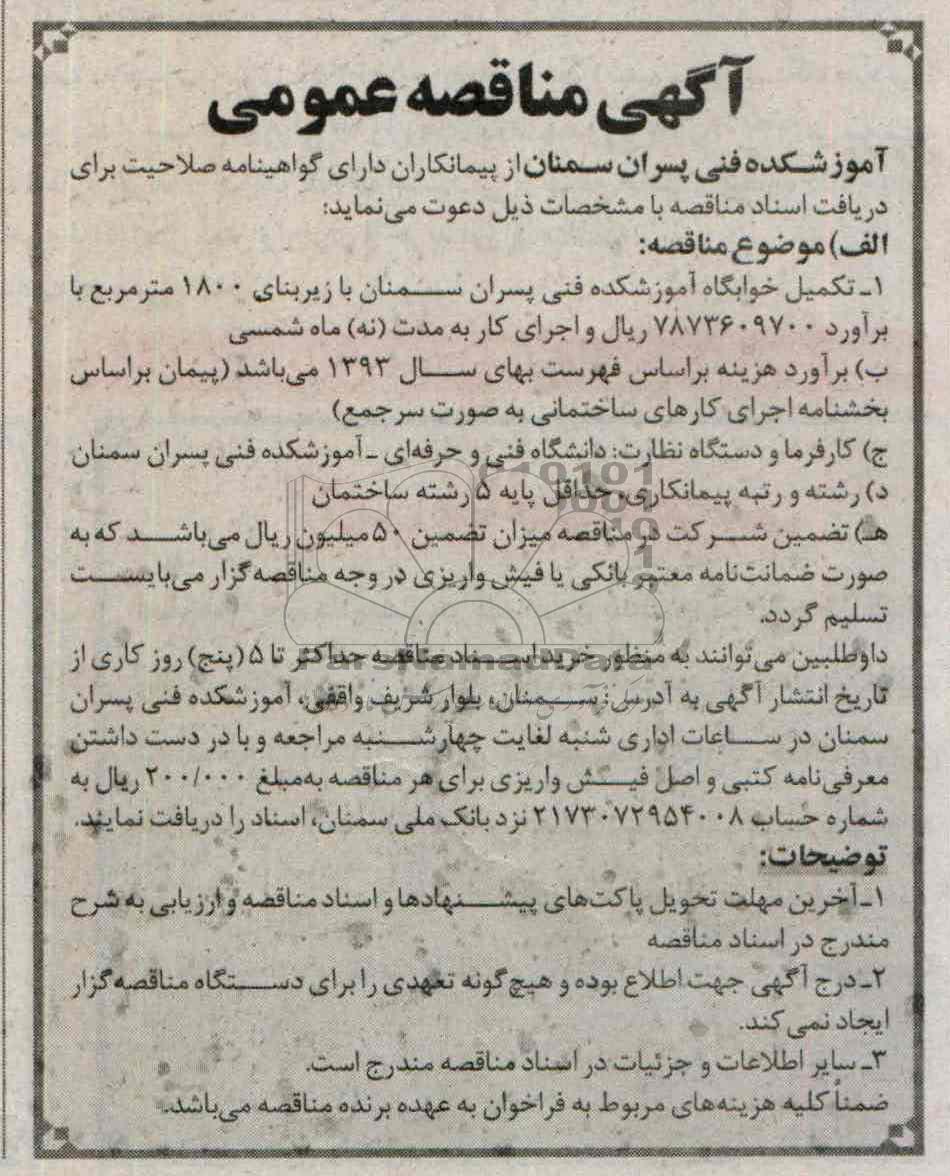 آگهی مناقصه عمومی
آموزشکده فنی پسران سمنان از پیمانکاران دارای گواهینامه صلاحیت برای
دریافت اسناد مناقصه با مشخصات ذیل دعوت می‌نماید:
الف) موضوع مناقصه:
۱ـ تکمیل خوابگاه آموزشکده فنی پسران سمنان با زیربنای ۱۸۰۰ مترمربع با
برآورد ۷۸۷۳۶۰۹۷۰۰ ریال و اجرای کار به مدت (نه) ماه شمسی
ب) برآورد هزینه براساس فهرست بهای سال ۱۳۹۳ می‌باشد (پیمان براساس
بخشنامه اجرای کارهای ساختمانی به صورت سرجمع)
ج) کارفرما و دستگاه نظارت: دانشگاه فنی و حرفه‌ای ـ آموزشکده فنی پسران سمنان
د) رشته و رتبه پیمانکاری، حداقل پایه ۵ رشته ساختمان
هـ) تضمین شرکت در مناقصه میزان تضمین ۵۰ میلیون ریال می‌باشد که به
صورت ضمانت‌نامه معتبر بانکی یا فیش واریزی در وجه مناقصه‌گزار می‌بایست
تسلیم گردد.
داوطلبین می‌توانند به منظور خرید اسناد مناقصه حداکثر تا ۵ (پنج) روز کاری از
تاریخ انتشار آگهی به آدرس: سمنان، بلوار شریف واقفی، آموزشکده فنی پسران
سمنان در ساعات اداری شنبه لغایت چهارشنبه مراجعه و با در دست داشتن
معرفی‌نامه کتبی و اصل فیش واریزی برای هر مناقصه به‌مبلغ ۲۰۰/۰۰۰ ریال به
شماره حساب ۲۱۷۳۰۷۲۹۵۴۰۰۸ نزد بانک ملی سمنان، اسناد را دریافت نمایند.
توضیحات:
۱ـ آخرین مهلت تحویل پاکت‌های پیشنهادها و اسناد مناقصه و ارزیابی به شرح
مندرج در اسناد مناقصه
۲ـ درج آگهی جهت اطلاع بوده و هیچ‌گونه تعهدی را برای دستگاه مناقصه‌گزار
ایجاد نمی‌کند.
۳ـ سایر اطلاعات و جزئیات در اسناد مناقصه مندرج است.
ضمناً کلیه هزینه‌های مربوط به فراخوان به عهده برنده مناقصه می‌باشد.